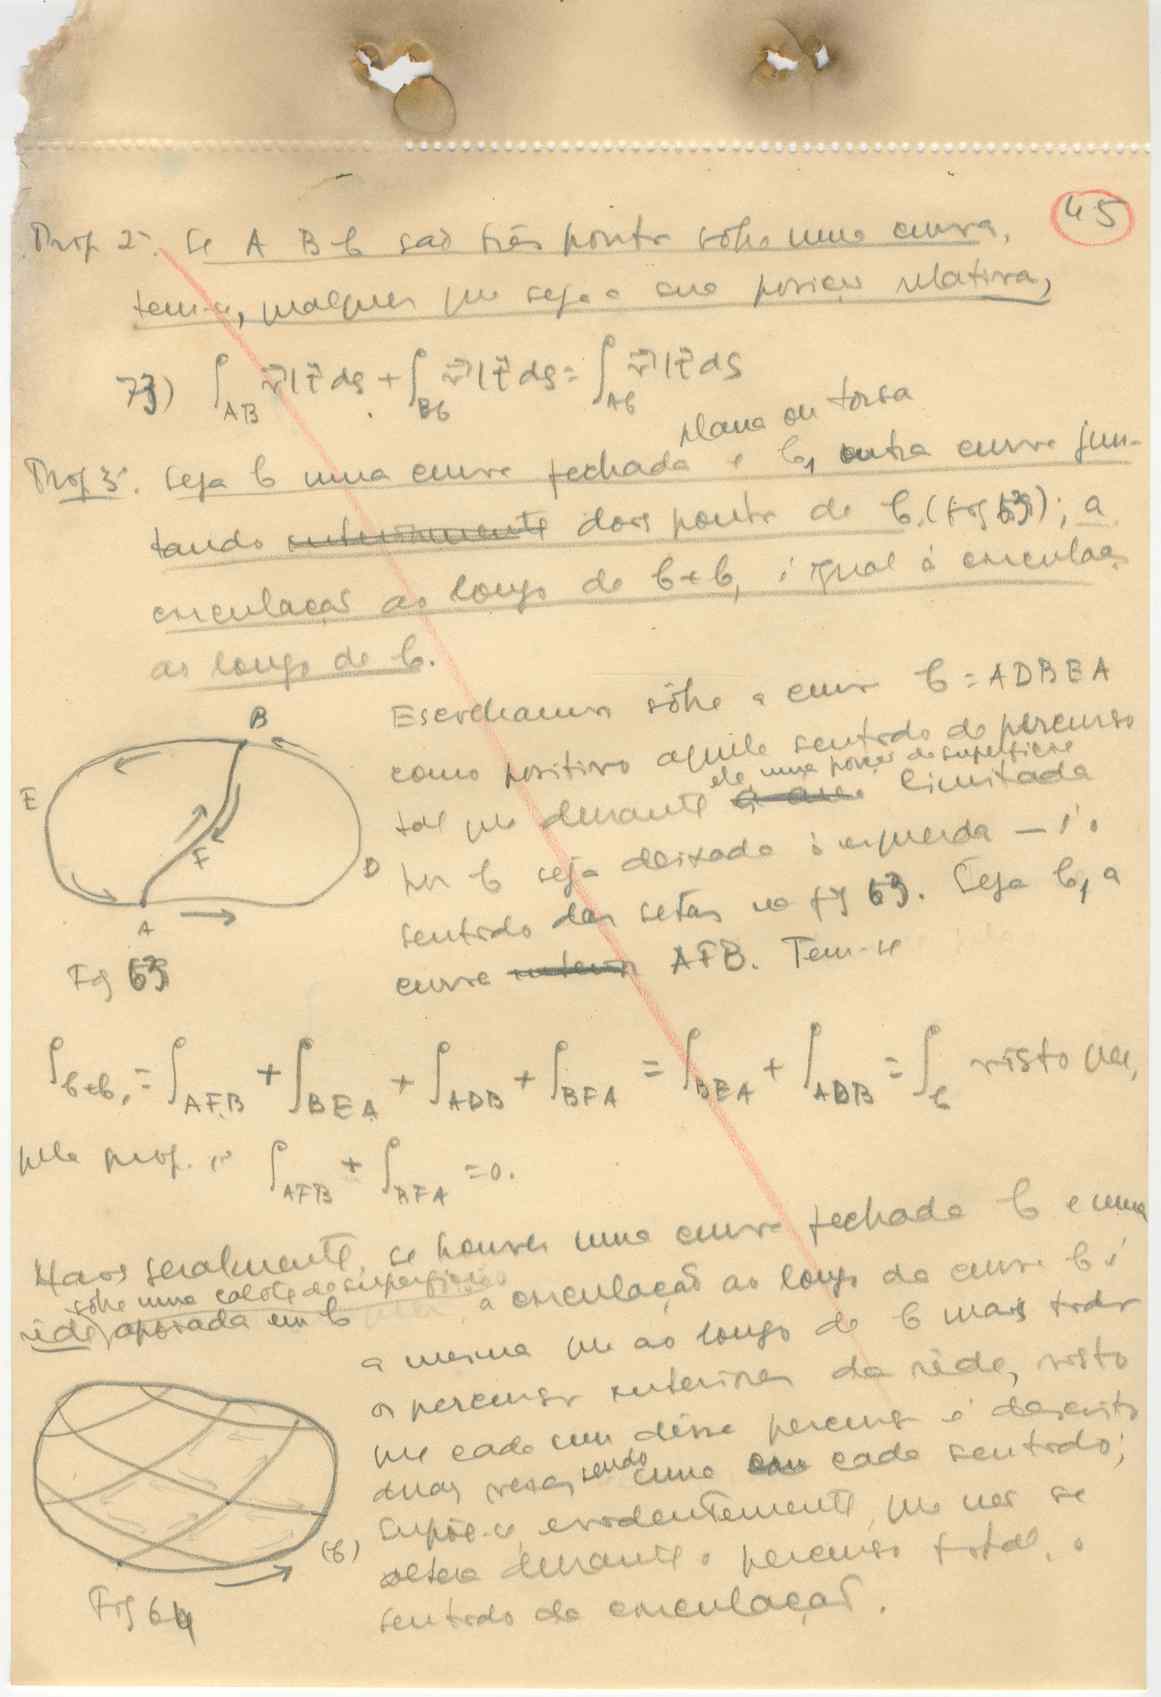 45
Prop 2ª. Se A B C são três pontos sôbre uma curva,
tem-se, qualquer que seja a sua posição relativa,
73) ∫AB v⃗|t⃗ ds + ∫BC v⃗|t⃗ ds = ∫AC v⃗|t⃗ ds
plana ou torsa
Prop 3ª. Seja C uma curva fechada e C₁ outra curva jun-
tando interiormente dois pontos de C (fig 63); a
circulação ao longo de C+C₁ é igual à circulação
ao longo de C.
Escolhamos sôbre a curva C = ADBEA
como positivo aquele sentido de percurso
ele uma porção de superfície
tal que durante a área limitada
por C seja deixada à esquerda — é o
sentido das setas na fig 63. Seja C₁ a
curva interior AFB. Tem-se
B
E
F
D
A
Fig 63
∫C+C₁ = ∫AFB + ∫BEA + ∫ADB + ∫BFA = ∫BEA + ∫ADB = ∫C visto que,
pela prop. 1ª ∫AFB + ∫BFA = 0.
Mais geralmente, se houver uma curva fechada C e uma
sôbre uma calote de superfície
rêde, apoiada em C a circulação ao longo da curva C é
a mesma que ao longo de C mais todos
os percursos interiores da rêde, visto
que cada um dêsses percursos é descrito
duas vezes, sendo uma em cada sentido;
supõe-se, evidentemente, que não se
altera durante o percurso total, o
sentido da circulação.
(C)
Fig 64